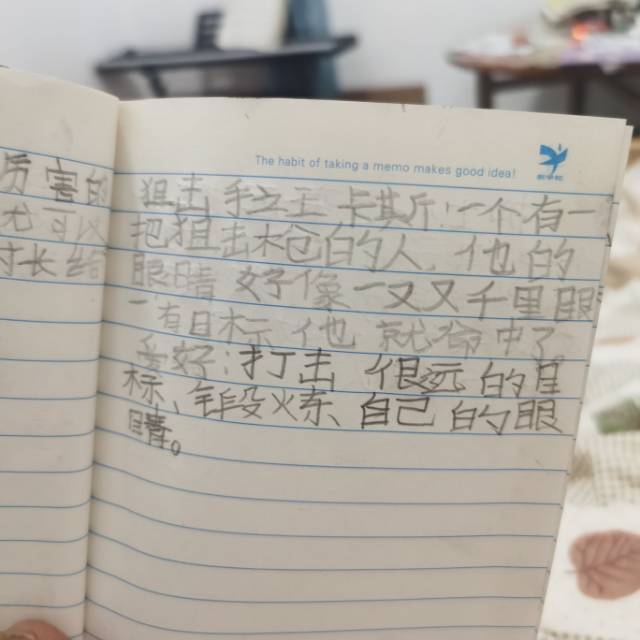 The habit of taking a memo makes good idea!
厉害的
也可以
时长给
狙击手之王卡其斤一个有一
把狙击木仓白的人.他的
眼睛好像一又又千里眼
一有目木示他就命中了
爱好:打击很远的目
标、锻火系自己的眼
睛。